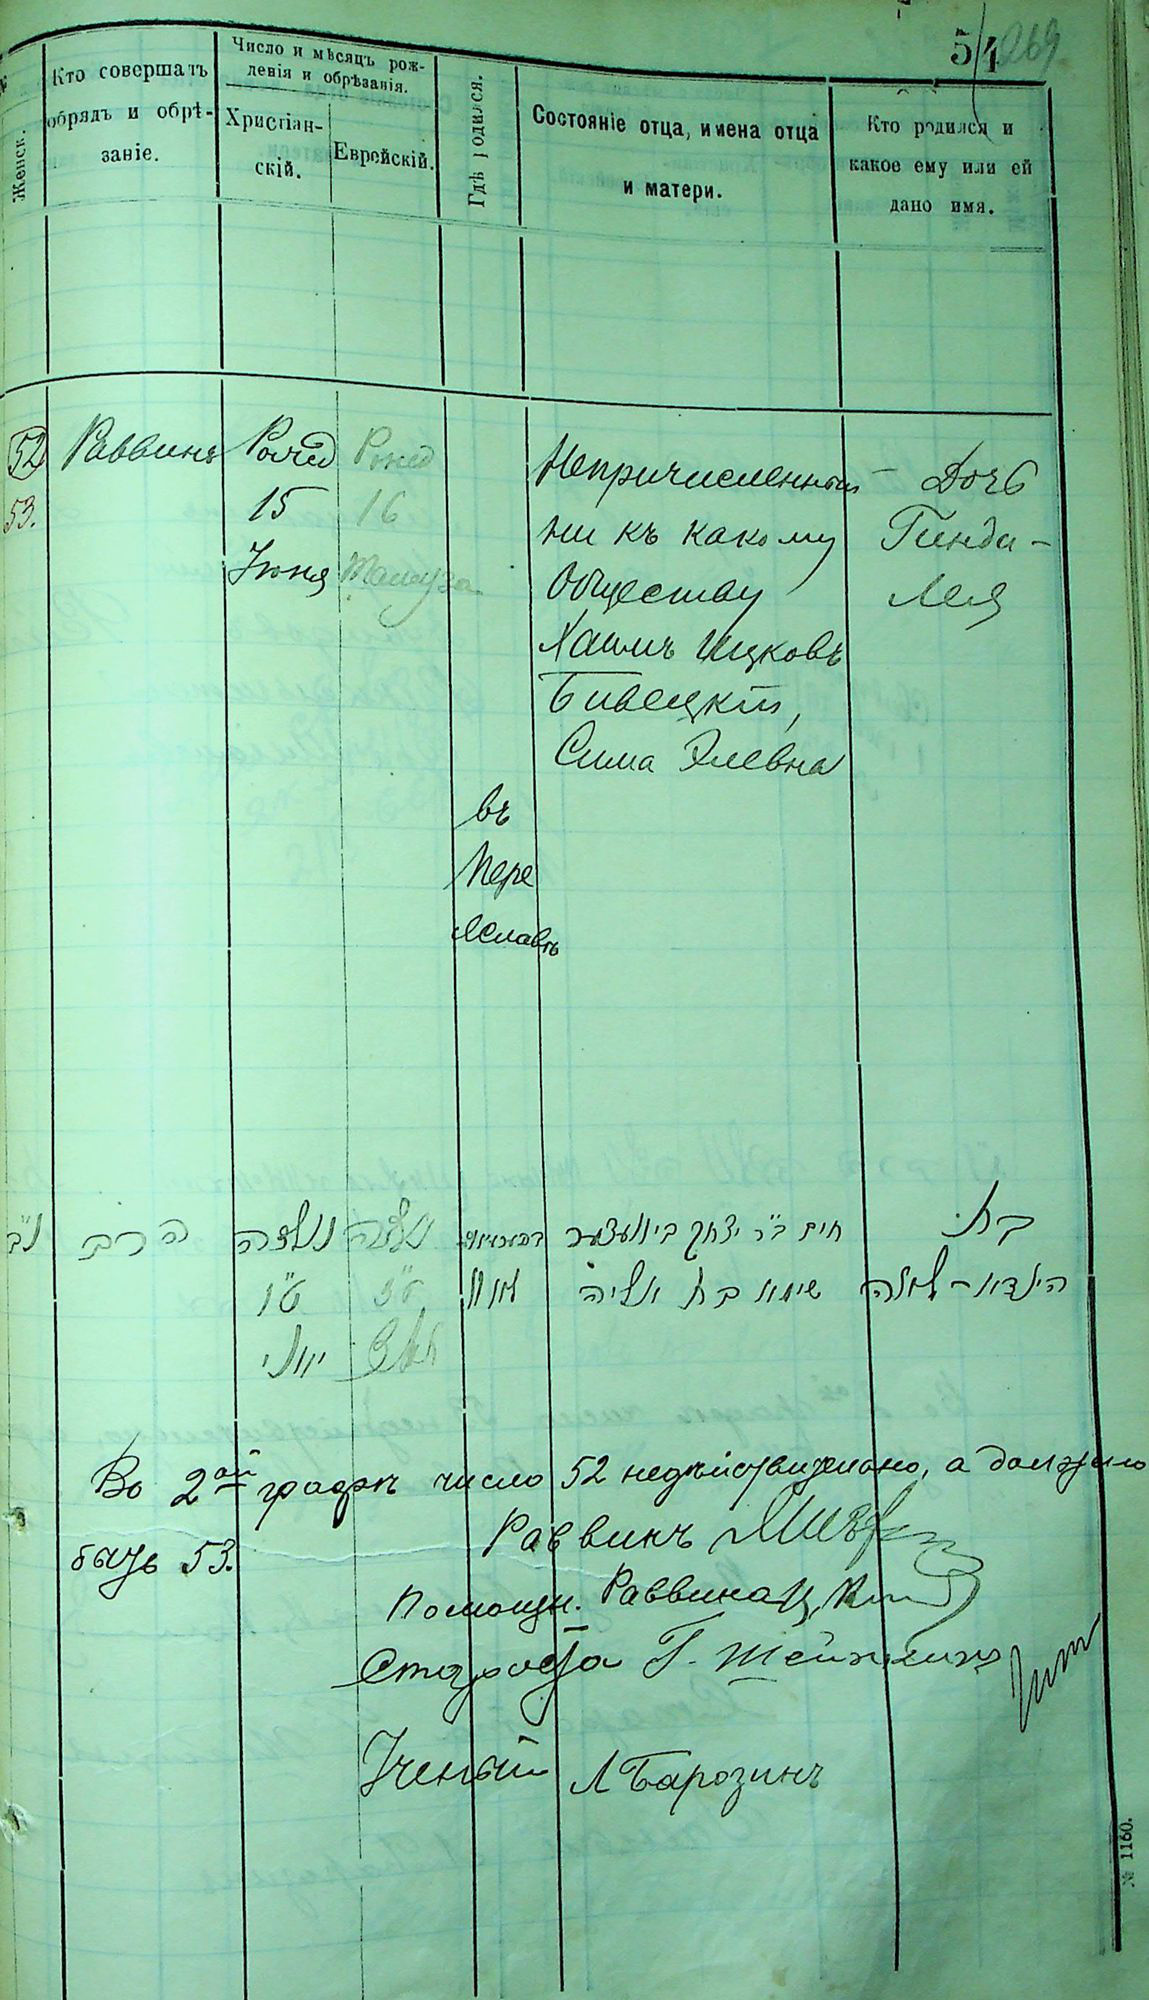 5/4 269
Женск.
Кто совершалъ
обрядъ и обрѣ-
заніе.
Число и мѣсяцъ рож-
денія и обрѣзанія.
Христіан-
скій.
Еврейскій.
Гдѣ родился.
Состояніе отца, имена отца
и матери.
Кто родился и
какое ему или ей
дано имя.
52
53.
Раввинъ
Рожд
15
Іюня
Рожд
16
Тамуза
въ
Пере
яславѣ
Непричисленный
ни къ какому
обществу
Хаимъ Ицковъ
Бивецкій,
Сима Элевна
Дочь
Гинда-
Лея
נ"ב
הרב
נולדה
ט"ו
יוני
נולדה
ט"ז
תמוז
חיים ב"ר יצחק
שימא בת אליה
בת
הינדא-לאה
Во 2ой графѣ число 52 недѣйствительно, а должно
быть 53.
Раввинъ
Помощн. Раввина
Староста Г.
Ученый Л Барозинъ
№ 1160.